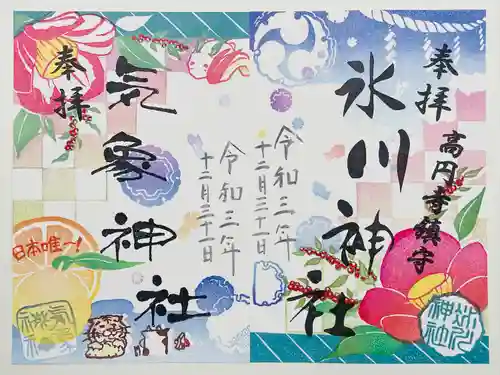 奉拝
高円寺鎮守
氷川神社
令和三年
十二月三十一日
氷川神社
奉拝
気象神社
令和三年
十二月三十一日
日本唯一!
気象神社